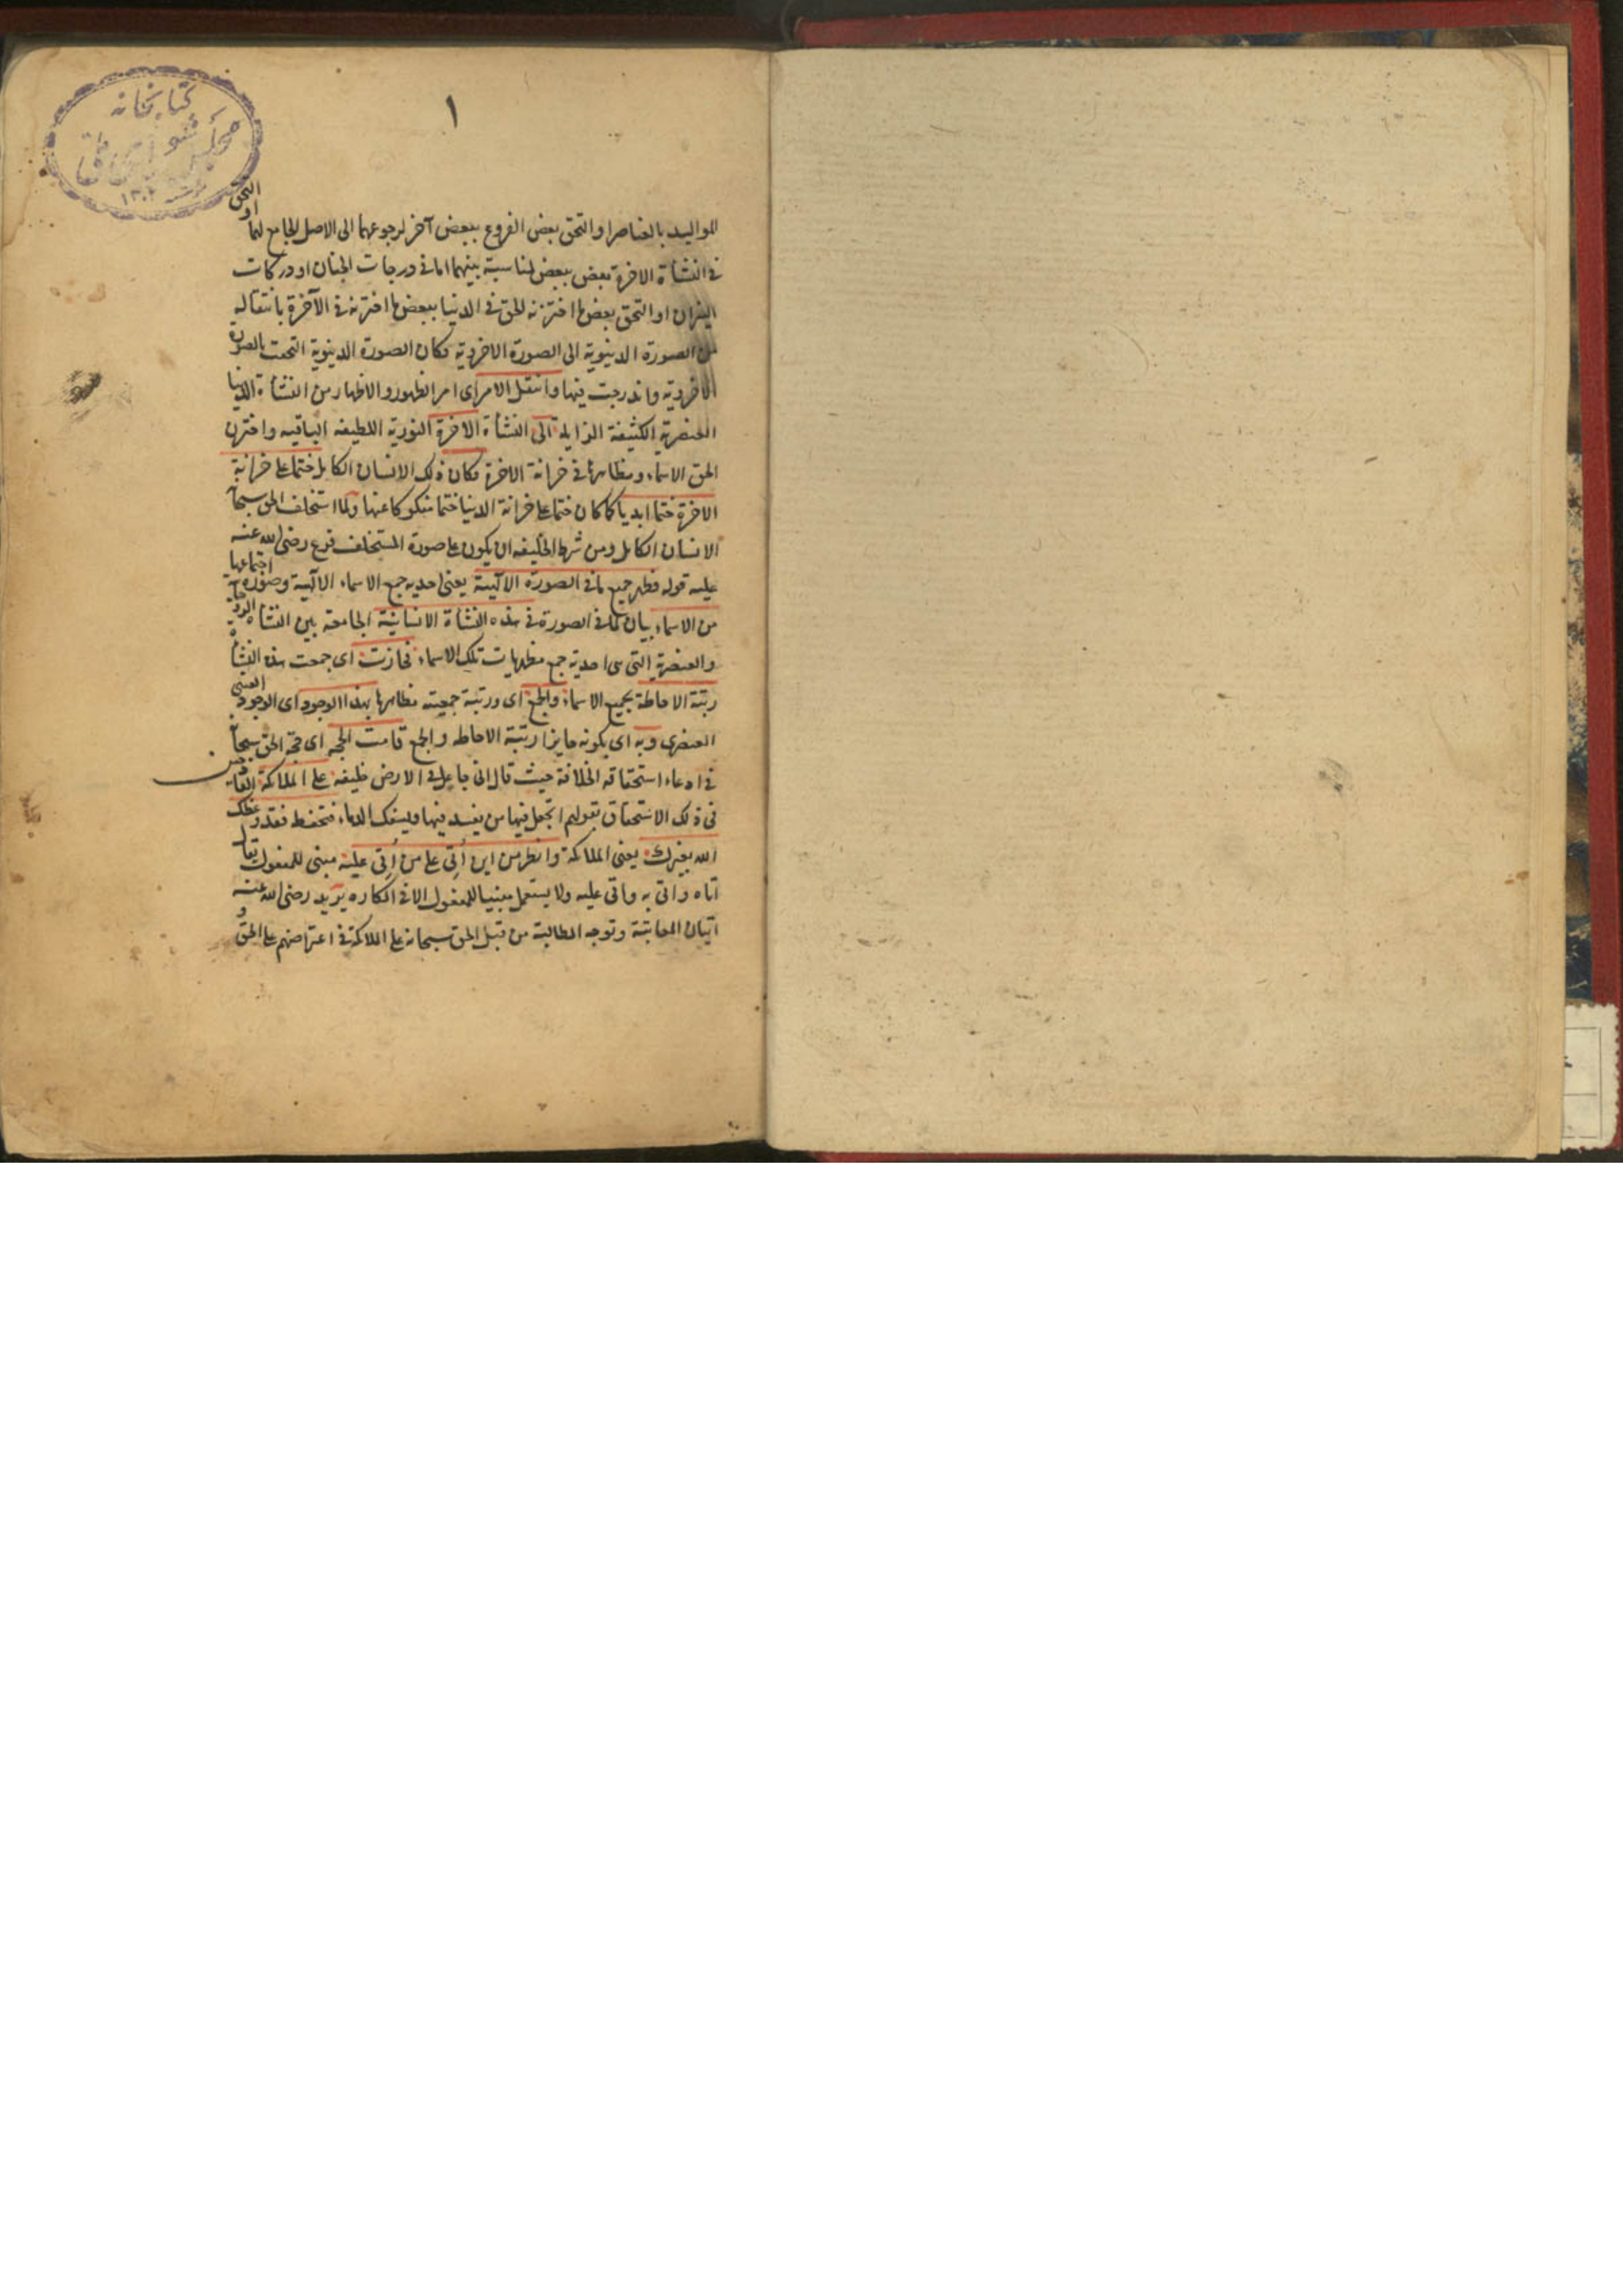 ١
كتابخانه
مجلس شورای ملی
١٣٠٢
المواليد بالعناصر او التحق بعض الفروع ببعض آخر لرجوعهما الى الاصل الجامع لهما او التحق
فى النشأة الاخرة بعض ببعض لمناسبة بينهما اما فى درجات الجنان او دركات
النيران او التحق بعض ما اختزنه الحق فى الدنيا ببعض ما اختزنه فى الآخرة بانتقاله
من الصورة الدنيوية الى الصورة الاخروية فكان الصورة الدنيوية التحقت بالصورة
الاخروية واندرجت فيها وانتقل الامر اى امر الظهور والاظهار من النشأة الدنيا
العنصرية الكثيفة الزايلة الى النشأة الاخرة النورية اللطيفه الباقيه واختزن
الحق الاسماء ومظاهرها فى خزانة الاخرة فكان ذلك الانسان الكامل ختما على خزانة
الاخرة ختما ابديا كما كان ختما على خزانة الدنيا ختما منفكوكا عنها ولما استخلف الحق سبحانه
الانسان الكامل ومن شرط الخليفه ان يكون على صورة المستخلف فرع رضى الله عنه
عليه قوله فظهر جميع ما فى الصورة الالهية يعنى احديه جمع الاسماء الالهية وصورة اجتماعها
من الاسماء بيان لما فى الصورة فى هذه النشأة الانسانية الجامعة بين النشأة الروحانية
والعنصرية التى هى احدية جمع مظهريات تلك الاسماء فحازت اى جمعت هذه النشأة
رتبة الاحاطة بجميع الاسماء والجمع اى ورتبة جمعيته مظاهرها بهذا الوجود اى الوجود العينى
العنصرى وبه اى بكونه حايزا رتبة الاحاطه والجمع قامت الحجه اى حجة الحق سبحانه
فى ادعاء استحقاقه الخلافة حيث قال انى جاعل فى الارض خليفه على الملائكة القادحين
فى ذلك الاستحقاق بقولهم اتجعل فيها من يفسد فيها ويسفك الدماء فتحفظ فقد وعظك
الله بغيرك يعنى الملائكة وانظر من اين أُتِى على من أُتِى عليه مبنى للمفعول يقال
اتاه واتى به واتى عليه ولا يستعمل مبنيا للمفعول الا فى المكاره يريد رضى الله عنه
اتيان المعاتبة وتوجه المطالبة من قبل الحق سبحانه على الملائكة فى اعتراضهم على الحق و